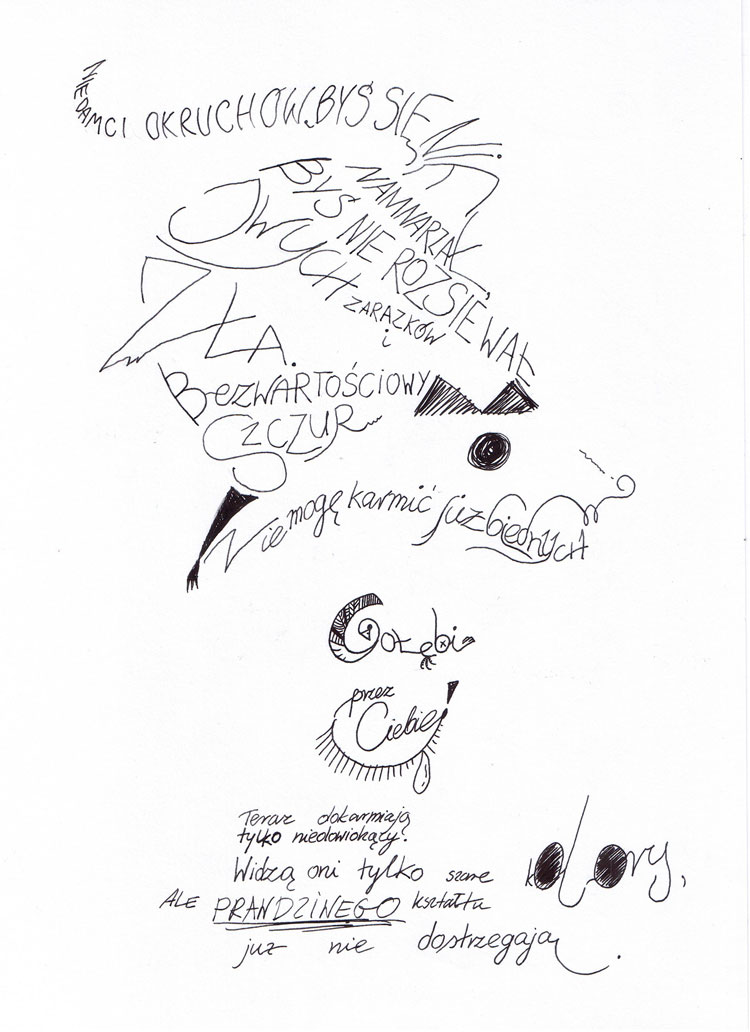 NIE DAM CI OKRUCHÓW, BYŚ SIĘ
NAMNARZAŁ,
BYŚ NIE ROZSIEWAŁ
SWYCH ZARAZKÓW
i
ZŁA.
BEZWARTOŚCIOWY
SZCZUR
Nie mogę karmić już biednych
Gołębi
przez
Ciebie!
Teraz dokarmiają
tylko niedowidzący.
Widzą oni tylko szare kolory,
ALE PRAWDZIWEGO kształtu
już nie dostrzegają.